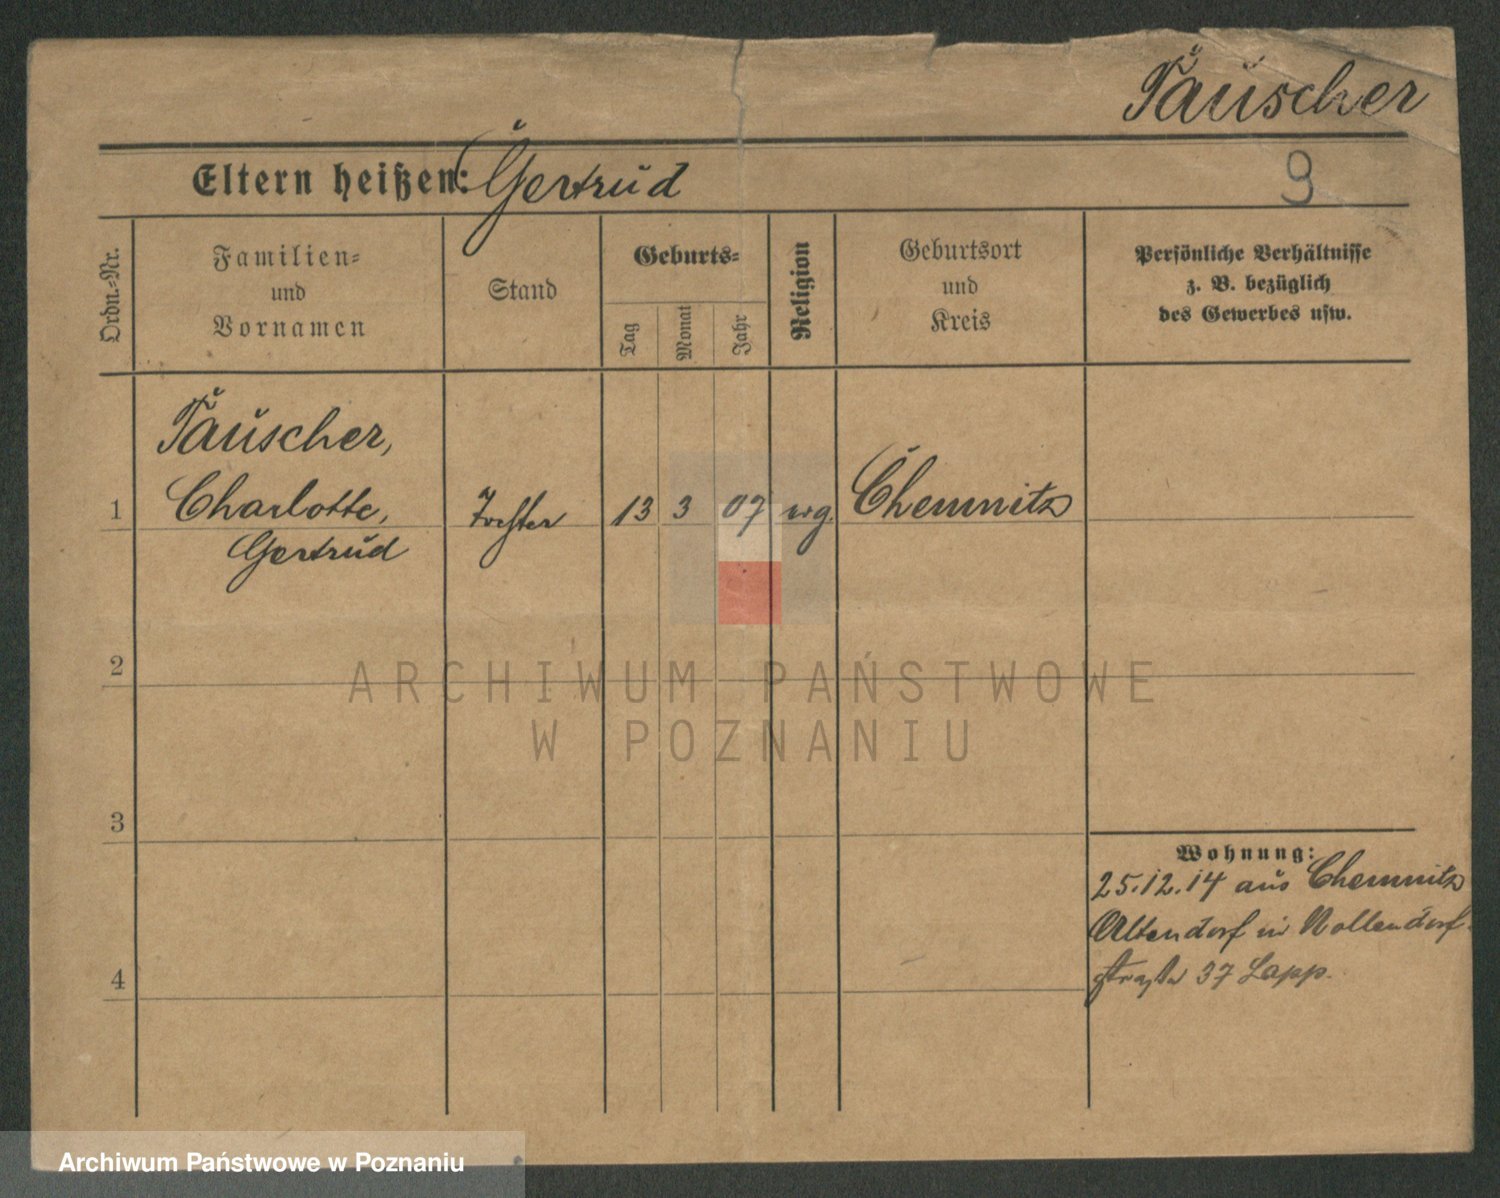 Täuscher
Eltern heißen: Gertrud
9
Ordn.-Nr.
Familien-
und
Vornamen
Stand
Geburts-
Tag
Monat
Jahr
Religion
Geburtsort
und
Kreis
Persönliche Verhältnisse
z. B. bezüglich
des Gewerbes usw.
Täuscher,
1 Charlotte, Tochter 13 3 07 evg. Chemnitz
Gertrud
2
ARCHIWUM PAŃSTWOWE
W POZNANIU
3
Wohnung:
25.12.14 aus Chemnitz
Altendorf in Nollendorf
straße 37 Lapp.
4
Archiwum Państwowe w Poznaniu